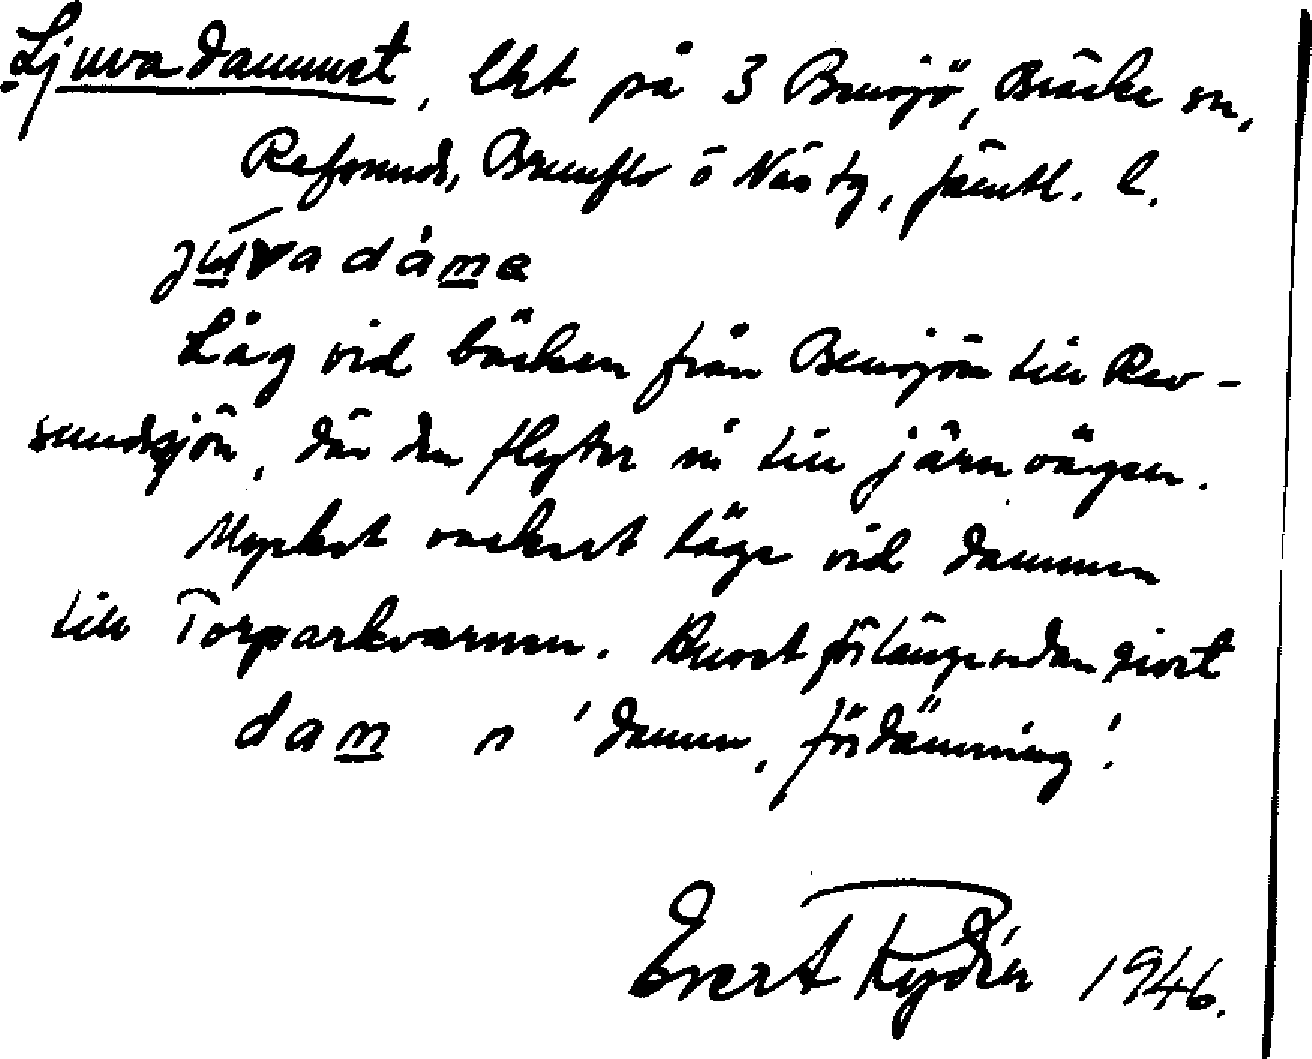 Ljuvadammet, lht på 3 Bensjö, Bräcke sn,
Refsunds, Brunflo o Näs tg, Jämtl. l.
júvadáme
Låg vid bäcken från Bensjön till Rev-
sundsjön, där den flyter ni till järnvägen.
Mycket vackert läge vid dammen
till Torparkvarnen. Huset för länge sedan rivet
dam n 'damm, fördämning'.
Evert 1946.